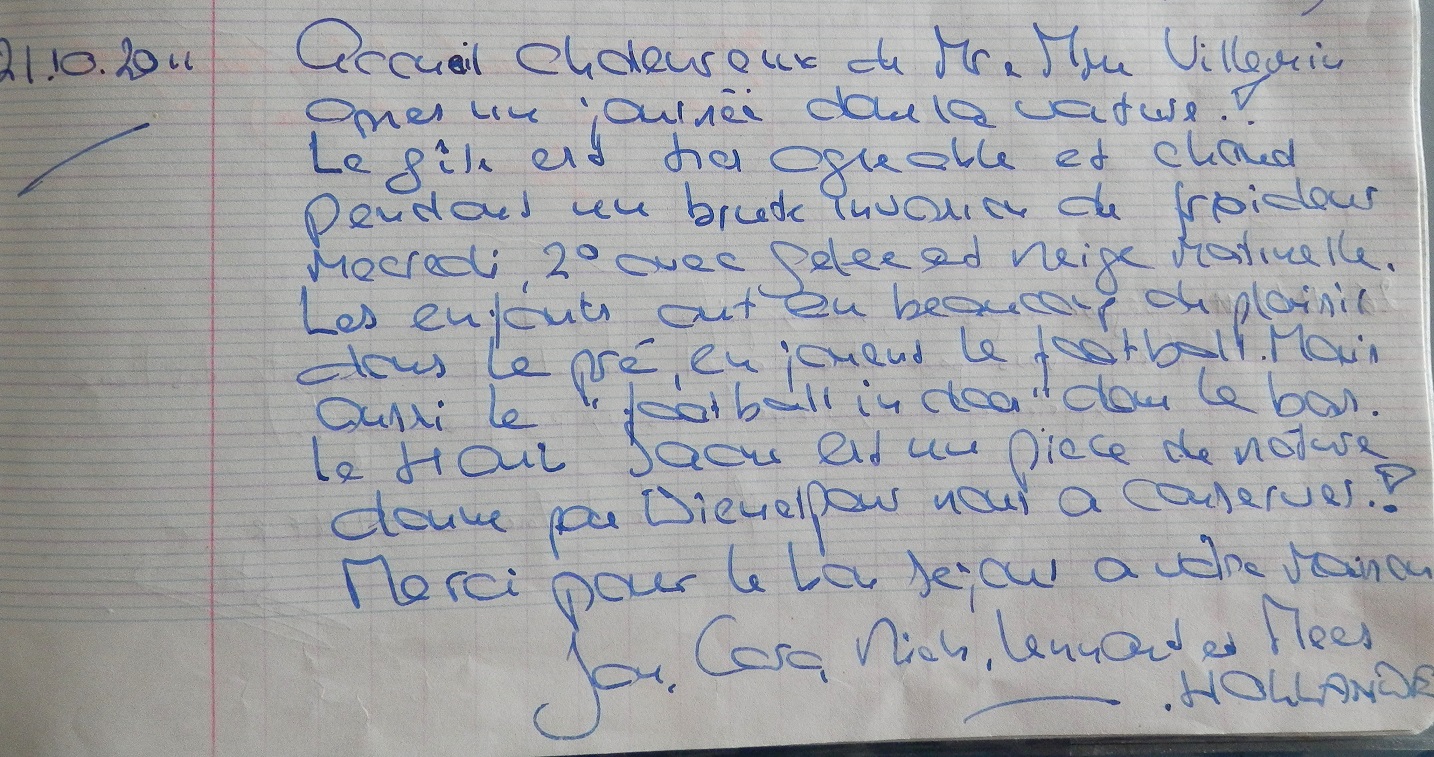 21.10.2011 Accueil chdeureux de Mr. Mme Villemin
apres un journéé dans la nature.!
Le gîte est tres agreable et chaud
pendant un brute invasion de froideur
Mecredi, 2° avec gelee et neige matinelle.
Les enfants ont eu beaucoup de plaisir
dans le pré, en jouent le football. Mais
aussi le "football in door" dans le bas.
le Haut Jacq est un piece de nature
donne par Dieu pour nous a conserver.!
Merci pour le bon sejour a votre maison
Jan, Cara, Niek, Lennard et Mees
HOLLANDE